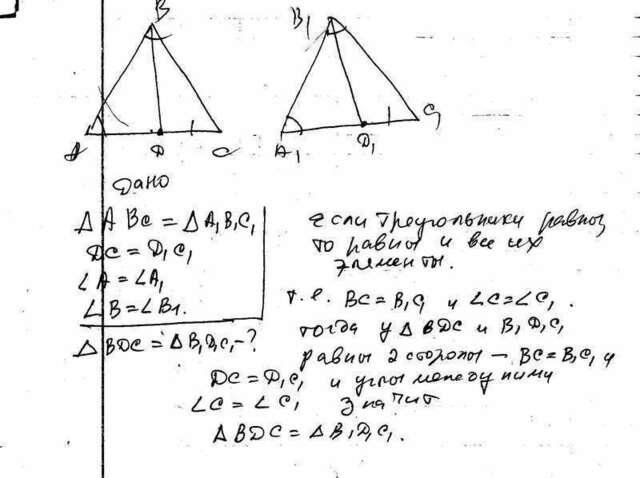 B
B₁
A
D
C
A₁
D₁
C₁
Дано
△ABC = △A₁B₁C₁
DC = D₁C₁
∠A = ∠A₁
∠B = ∠B₁.
△BDC = △B₁D₁C₁ - ?
если треугольники равны,
то равны и все их
элементы.
т.е. BC = B₁C₁ и ∠C = ∠C₁.
тогда у △BDC и B₁D₁C₁
равны 2 стороны — BC = B₁C₁ и
DC = D₁C₁ и углы между ними
∠C = ∠C₁ значит
△BDC = △B₁D₁C₁.